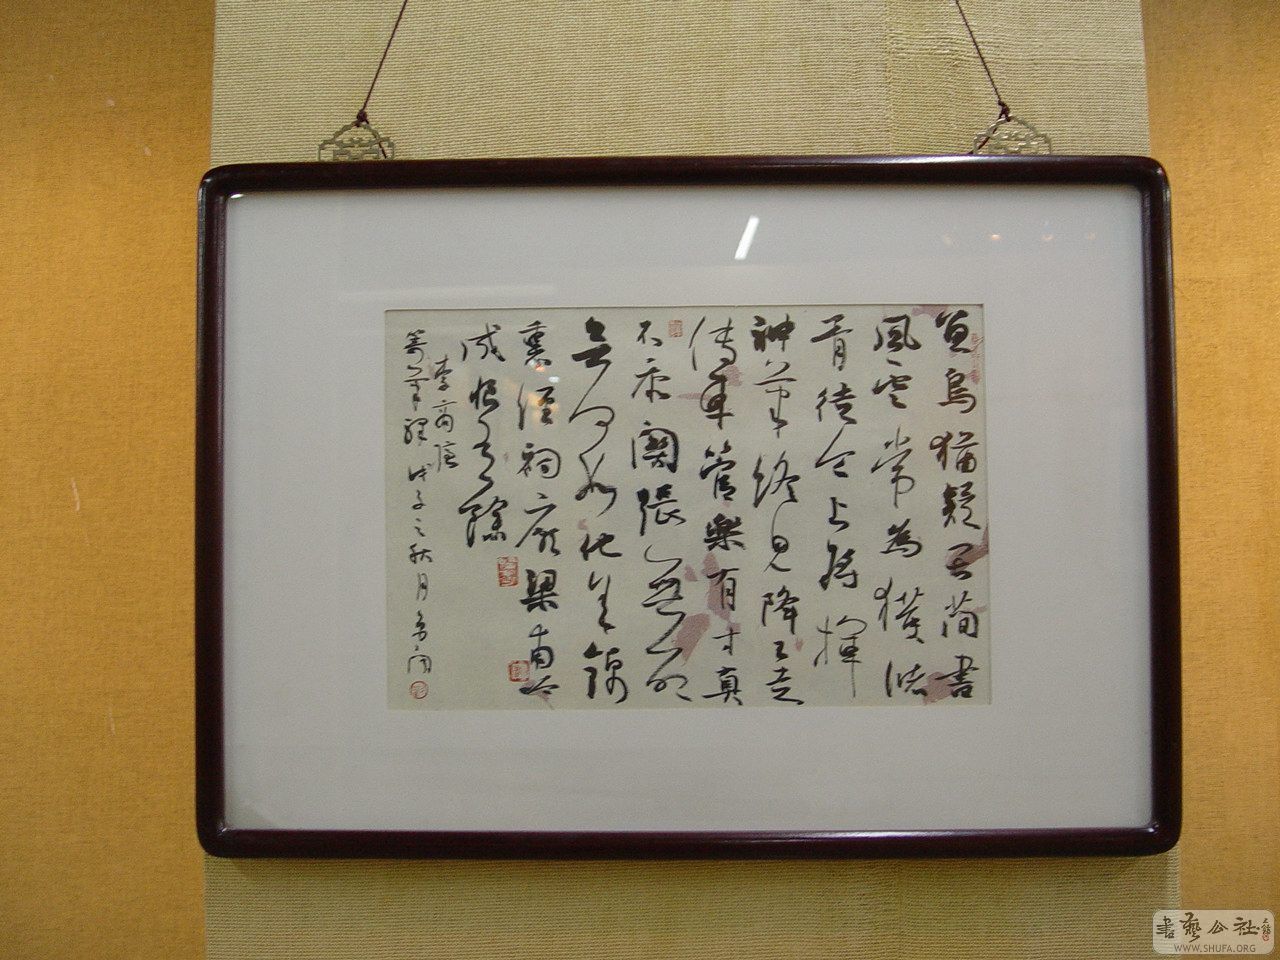 魚鳥猶疑畏簡書
風雲常為獲儲
胥徒令上將揮
神筆終見降王走
傳車管樂有才真
不忝關張無命
何如他年錦
裏經祠廟梁甫吟
成恨有餘
李商隱
籌筆驛 戊子之秋月
書藝公社
WWW.SHUFA.ORG